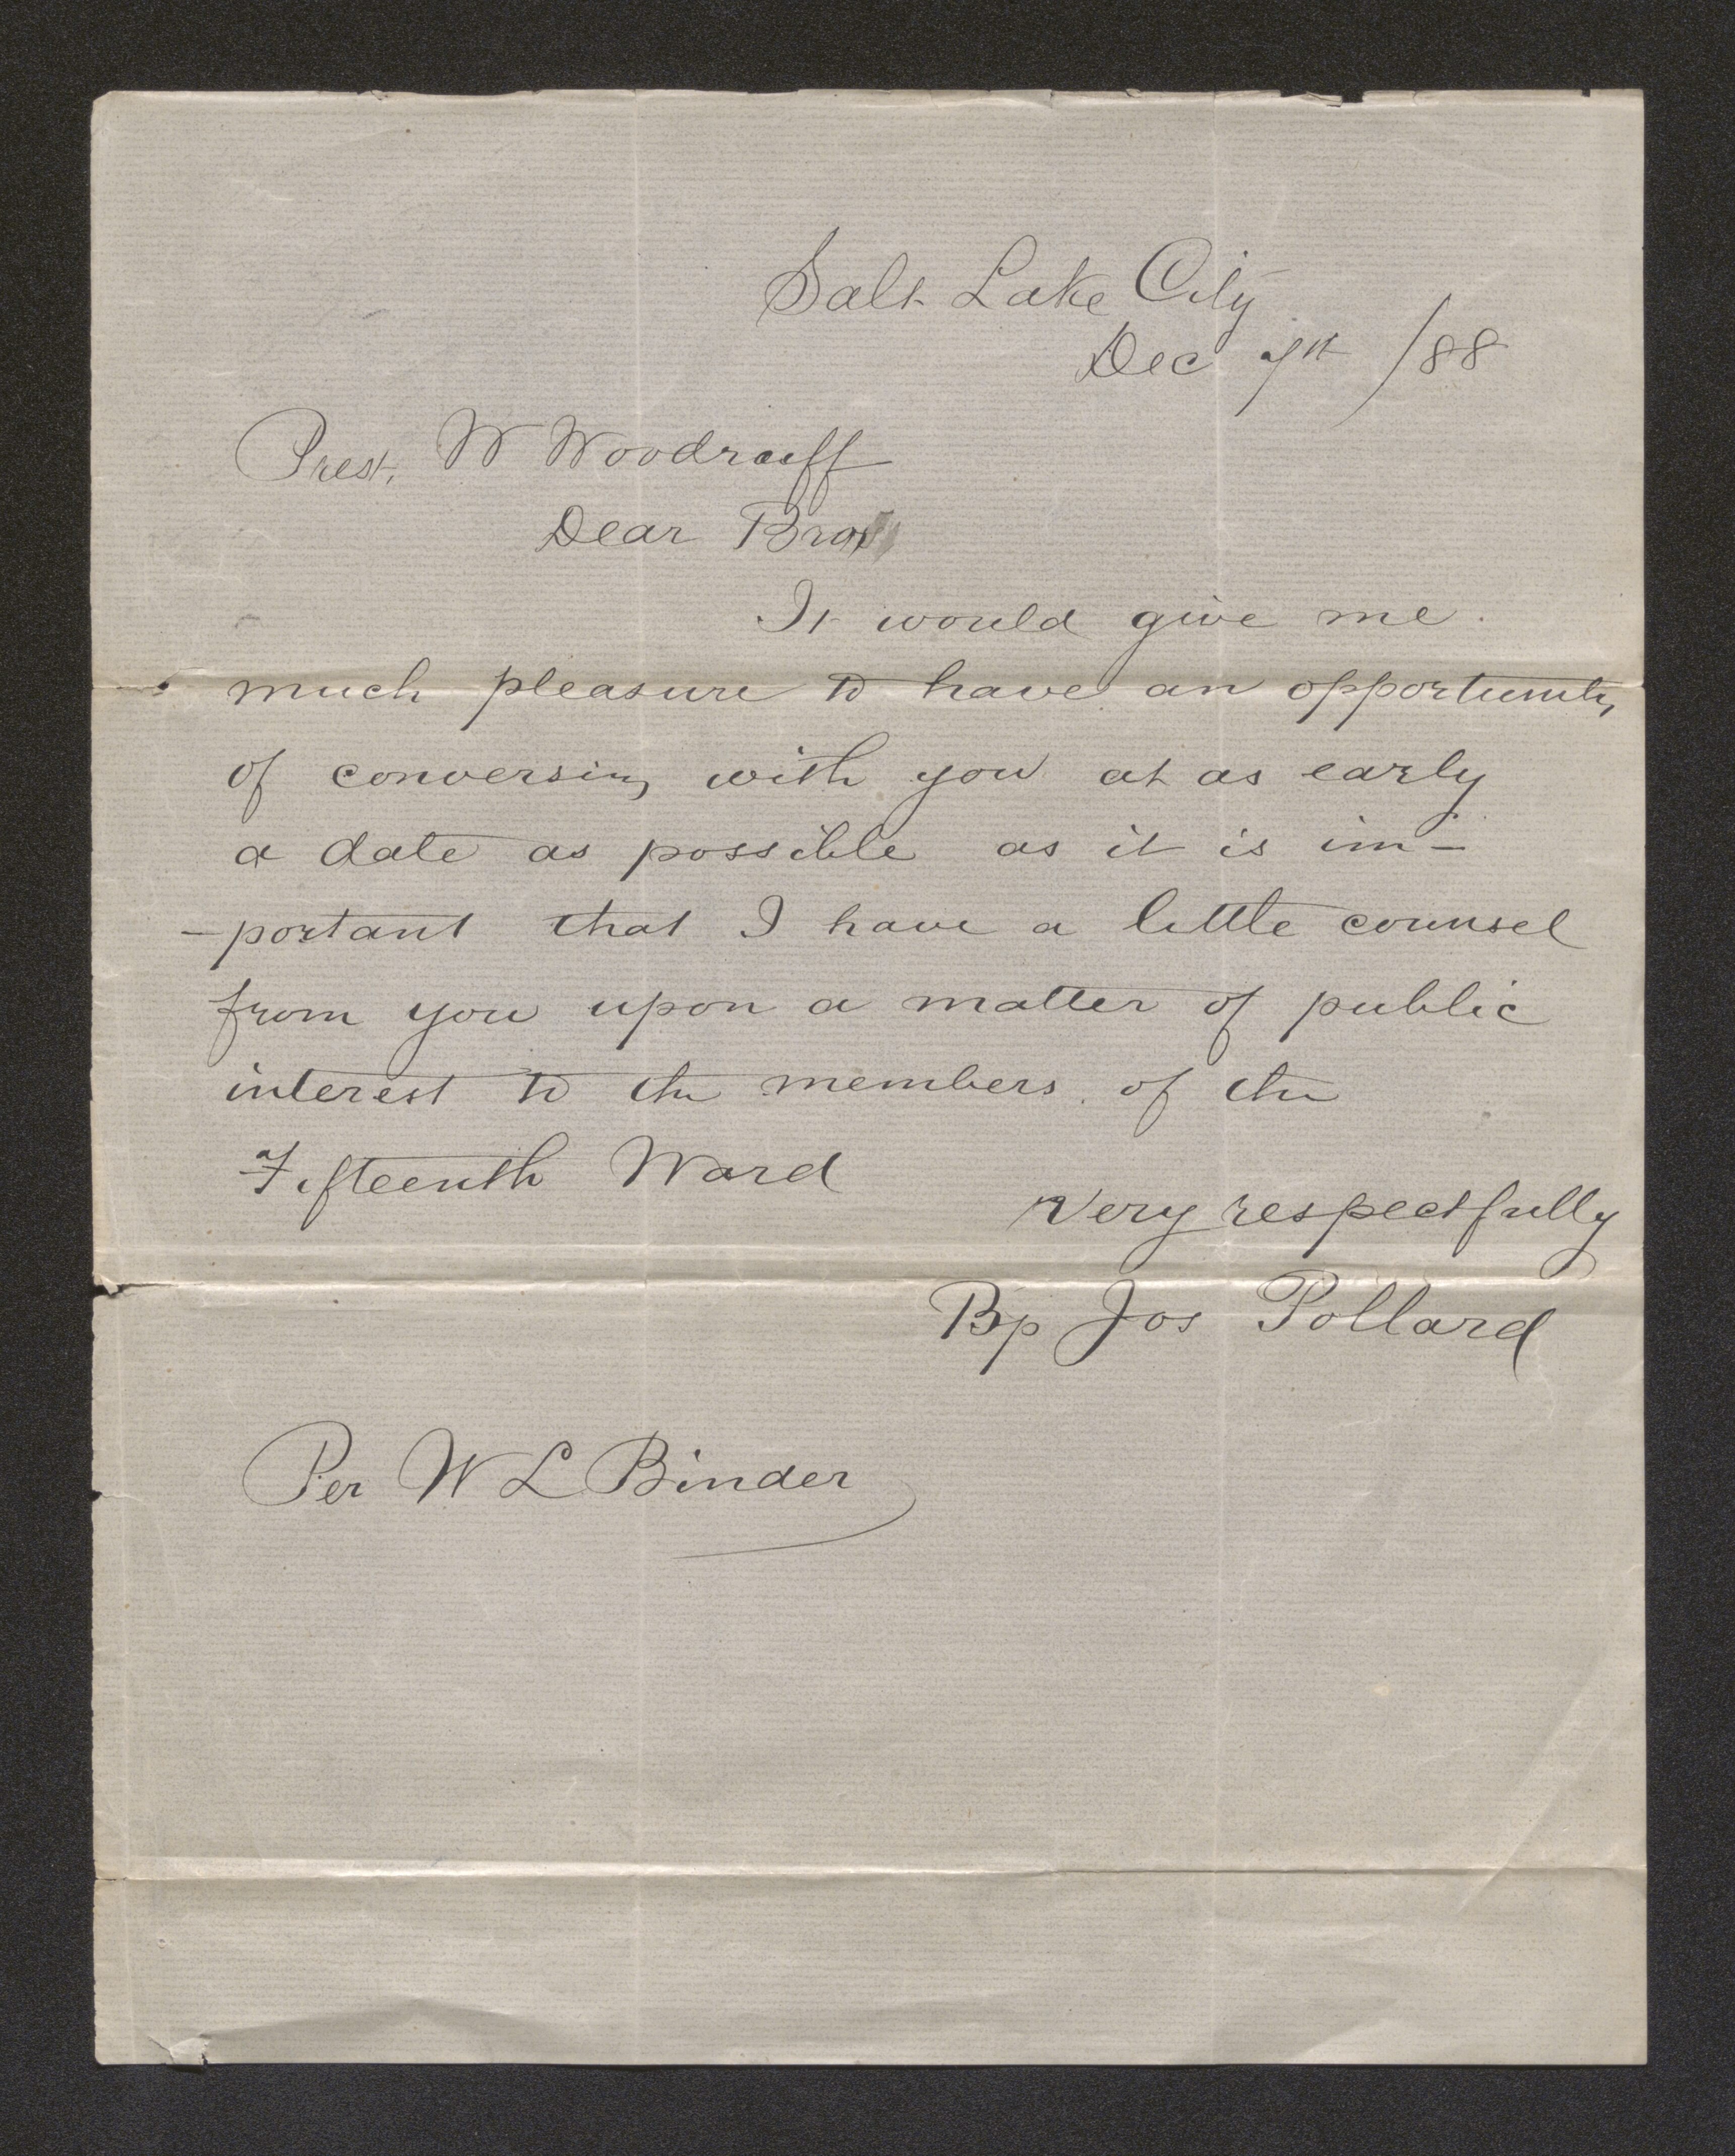 Salt Lake City
Dec 7th /88
Prest. W Woodruff
Dear Bro
It would give me
much pleasure to have an opportunity
of conversing with you at as early
a date as possible as it is im-
-portant that I have a little counsel
from you upon a matter of public
interest to the members of the
Fifteenth Ward
Very respectfully
Bp Jos Pollard
Per W L Binder